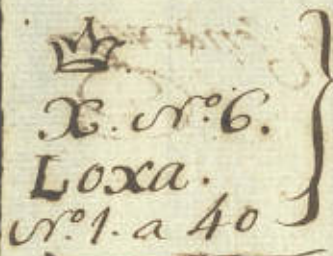 X. Nº6.
Loxa.
Nº1. a 40